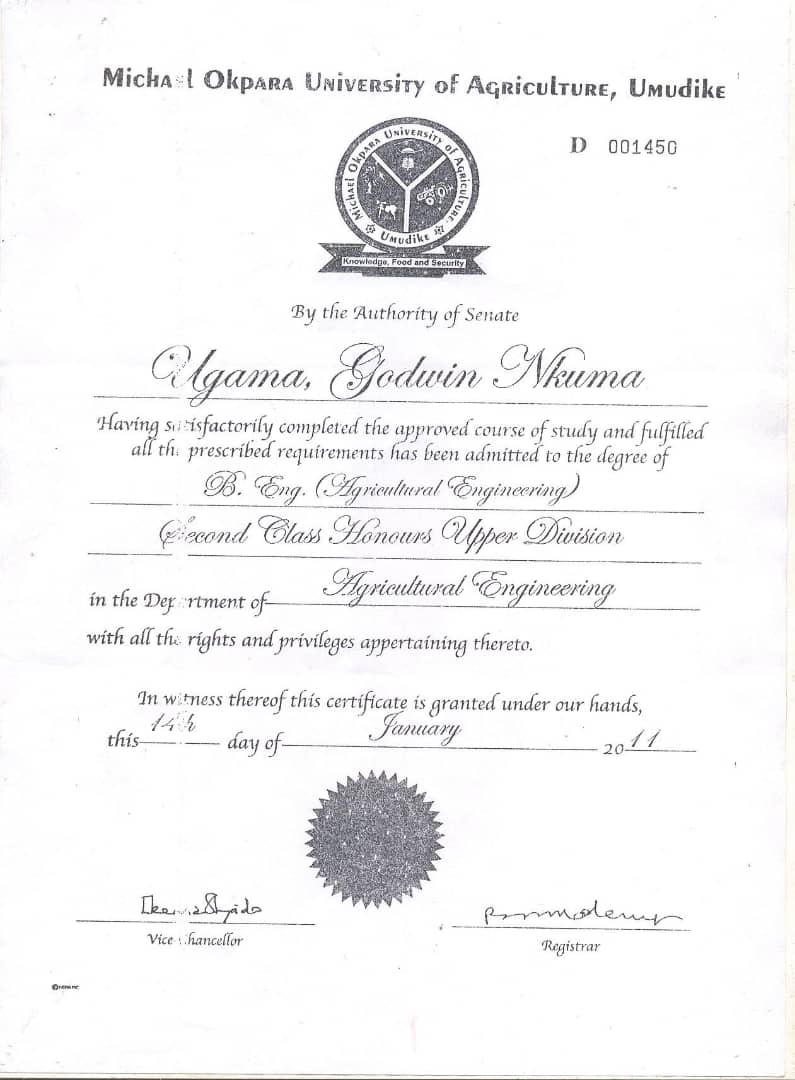 Michael Okpara University of Agriculture, Umudike
D 001450
Michael Okpara University of Agriculture
Umudike
Knowledge, Food and Security
By the Authority of Senate
Ugama, Godwin Nkuma
Having satisfactorily completed the approved course of study and fulfilled
all the prescribed requirements has been admitted to the degree of
B. Eng. (Agricultural Engineering)
Second Class Honours Upper Division
in the Department of Agricultural Engineering
with all the rights and privileges appertaining thereto.
In witness thereof this certificate is granted under our hands,
this 14th day of January 2011
Vice Chancellor
Registrar